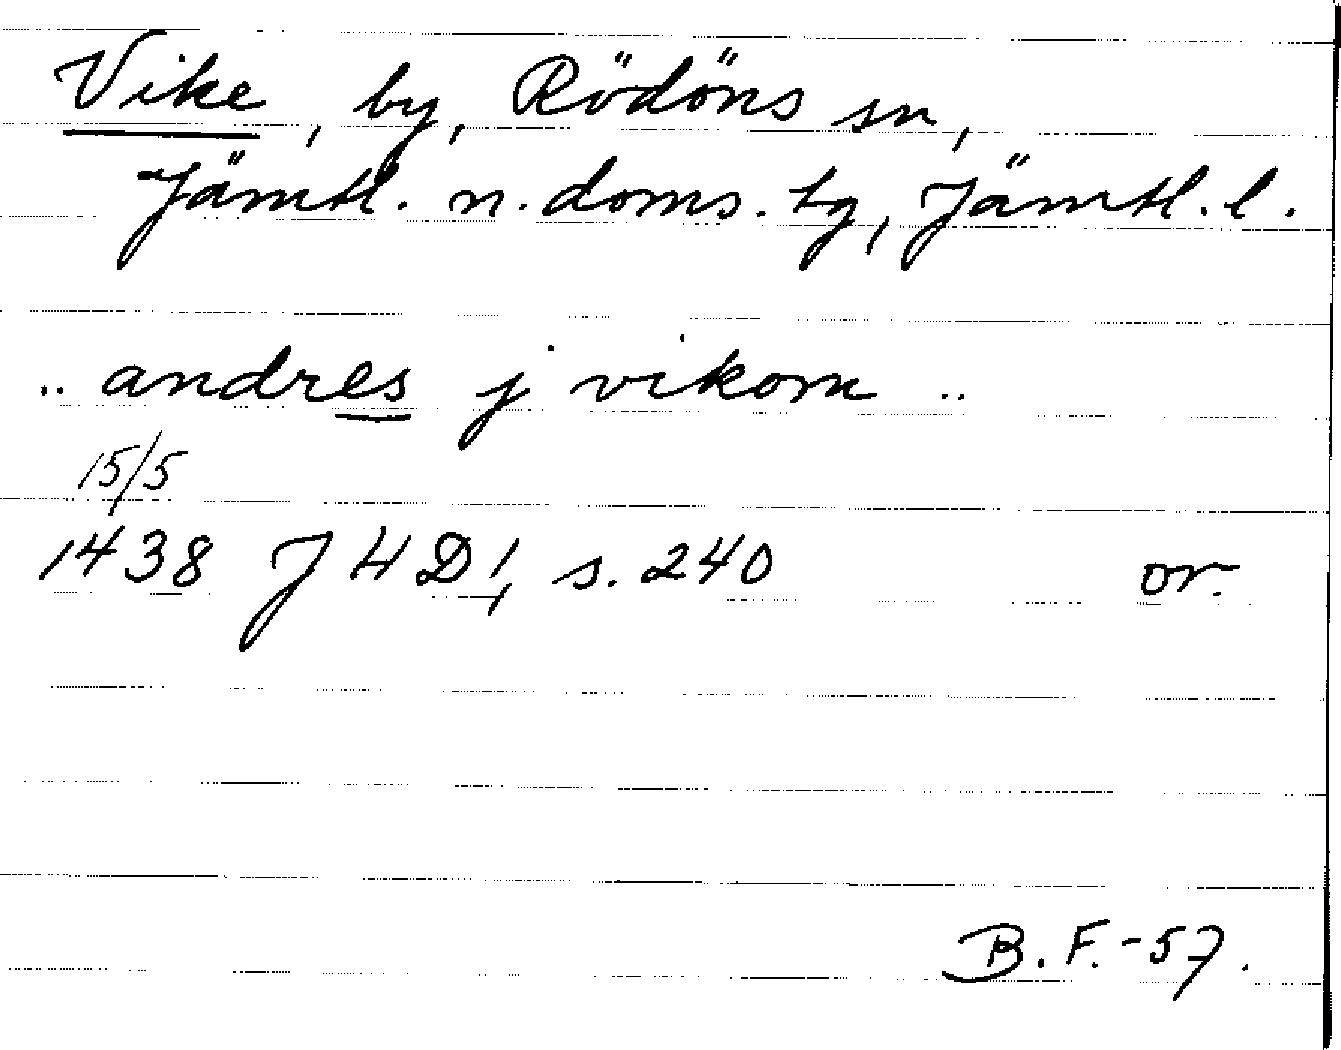 Vike, by, Rödöns sn,
Jämtl. n. doms. tg, Jämtl. l.
.. andres j vikom ..
15/5
1438 JHD 1, s. 240 or.
B. F. -57.